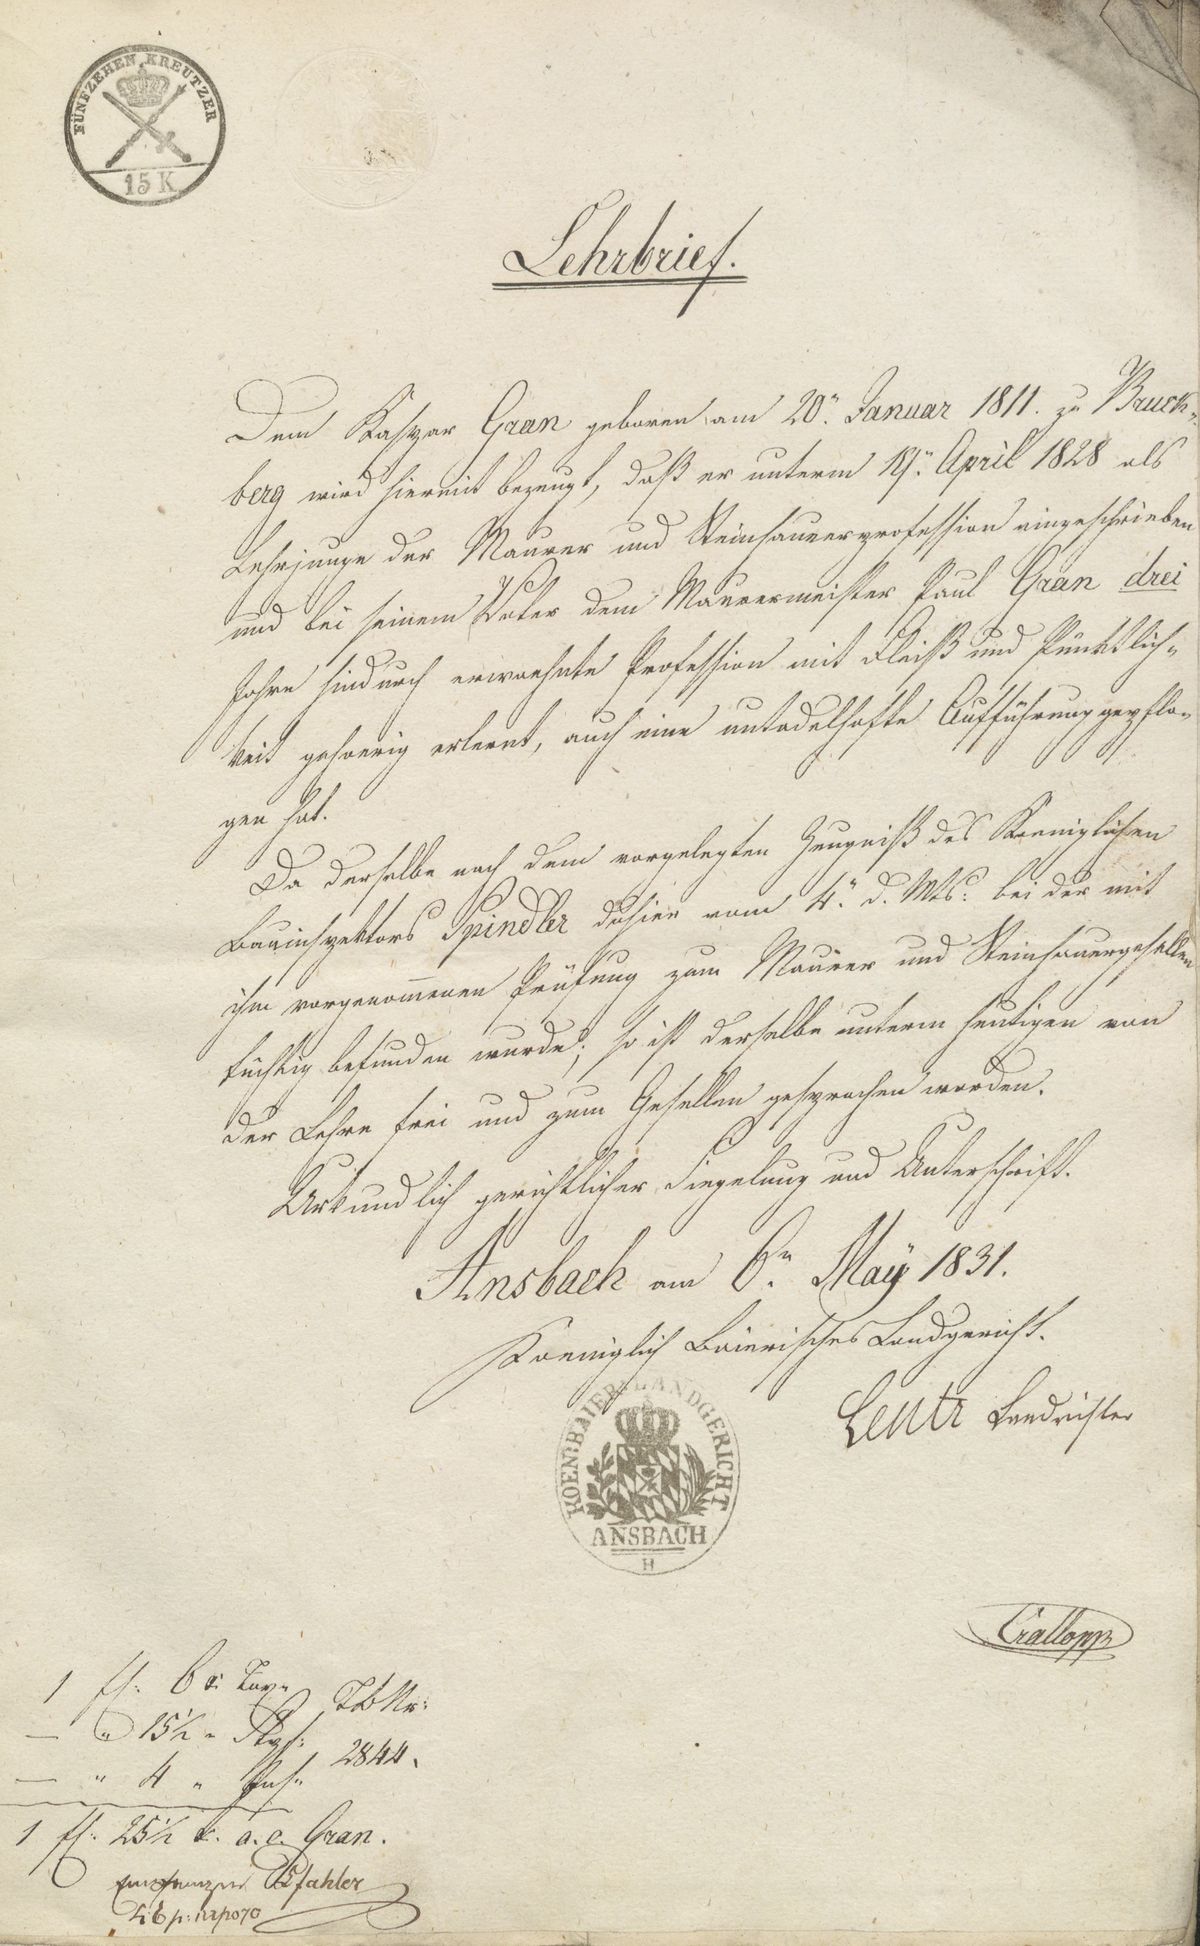 FÜNFZEHEN KREUTZER
15 K
Lehrbrief.
Dem Kaspar Gran geboren am 20n. Januar 1811. zu Bruck-
berg wird hiermit bezeugt, daß er unterm 19n. April 1828 als
Lehrjunge der Maurer und Steinhauerprofession eingeschrieben
und bei seinem Vater dem Maurermeister Paul Gran drei
Jahre hindurch erwaehnte Profession mit Fleiß und Pünktlich-
keit gehoerig erlernt, auch eine untadelhafte Aufführung gepflo-
gen hat.
Da derselbe nach dem vorgelegten Zeugniß des Koeniglichen
Bauinspektors Spindler dahier vom 4n. d. Mts. bei der mit
ihm vorgenommenen Prüfung zum Maurer und Steinhauergesellen
tüchtig befunden wurde; so ist derselbe unterm heutigen von
der Lehre frei und zum Gesellen gesprochen worden.
Urkundlich gerichtlicher Siegelung und Unterschrift.
Ansbach am 6n. May 1831.
Koeniglich Baierisches Landgericht.
KOEN: BAIER: LANDGERICHT
ANSBACH
H
Landrichter
1 fl: 6 x. Taxe
— " 15½ " 
— " 4 "
2844.
1 fl: 25½ x. a. c. Gran.
Pfahler